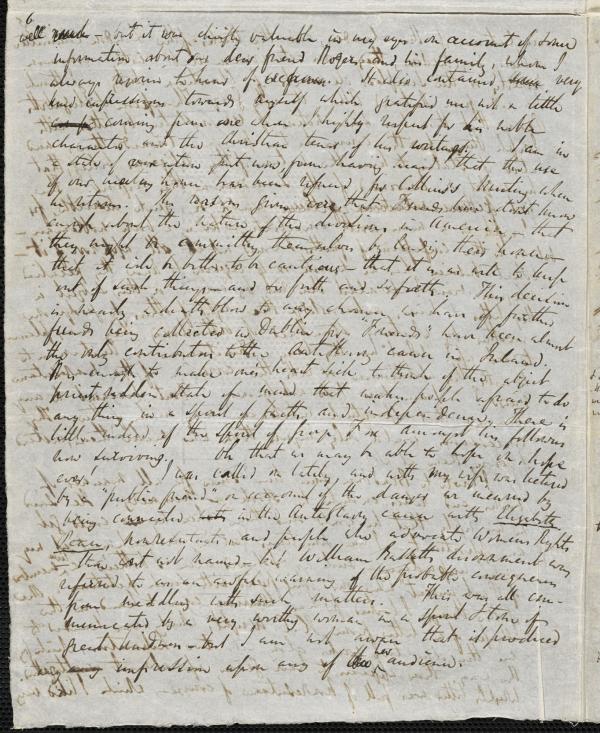 6
well - but it was chiefly valuable in my eyes on account of some
information about our dear friend Rogers, and his family, whom I
always rejoice to hear of. It also contained very
kind expressions towards myself which gratified me not a little
coming from one whom I highly respect for his noble
character and the Christian tone of his writings. I am in
a state of vexation just now from having heard that the use
of our meeting house has been refused for Collins's meeting when
he returns. The reasons given were that Friends here don't know
enough about the nature of the divisions in America, that
they might be committing themselves by lending their house -
that it wd be better to be cautious - that it is as well to keep
out of such things - and so forth and so forth. This decision
is nearly a death blow to any chance we have of further
funds being collected in Dublin for "Friends" have been almost
the only contributors to the Anti Slavery cause in Ireland.
It is enough to make one's heart sick to think of the abject
priest ridden state of mind that makes people afraid to do
any thing in a spirit of faith and independence. There is
little indeed of the spirit of George Fox amongst his followers
now surviving. Oh that we may be able to hope on, hope
ever! I was called on lately, and with my wife was lectured
by a "public friend" on account of the danger we incurred by
being connected in the Antislavery cause with Elizabeth
Pease, nonresistants, and people who advocate Womens Rights
William Bassett's disownment was
referred to as an awful warning of the probable consequences
from meddling with such matters. This was all com-
municated by a very worthy woman in a spirit & tone of
great kindness - but I am not aware that it produced
any impression upon any of her audience.